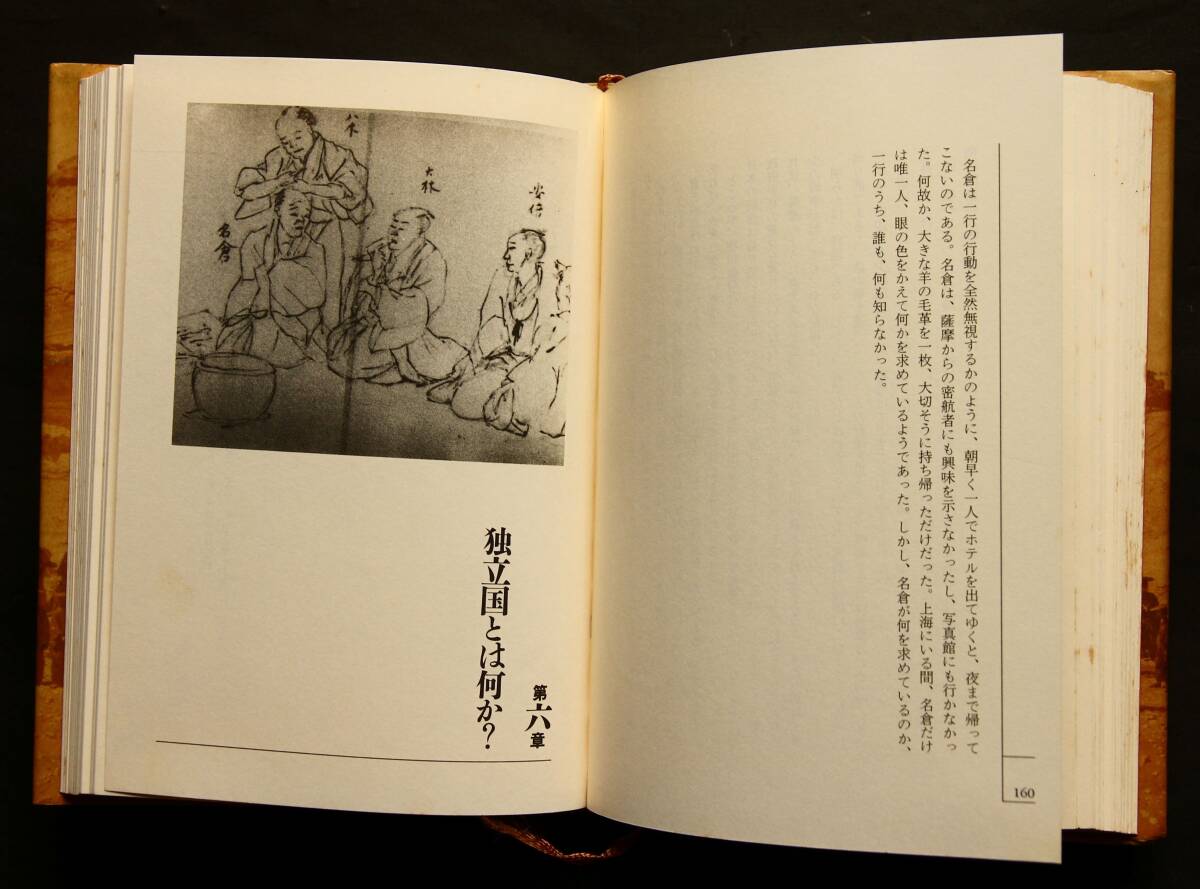 名倉は一行の行動を全然無視するかのように、朝早く一人でホテルを出てゆくと、夜まで帰って
こないのである。名倉は、薩摩からの密航者にも興味を示さなかったし、写真館にも行かなかっ
た。何故か、大きな羊の毛革を一枚、大切そうに持ち帰っただけだった。上海にいる間、名倉だけ
は唯一人、眼の色をかえて何かを求めているようであった。しかし、名倉が何を求めているのか、
一行のうち、誰も、何も知らなかった。
160
第六章
独立国とは何か?
大林
名倉